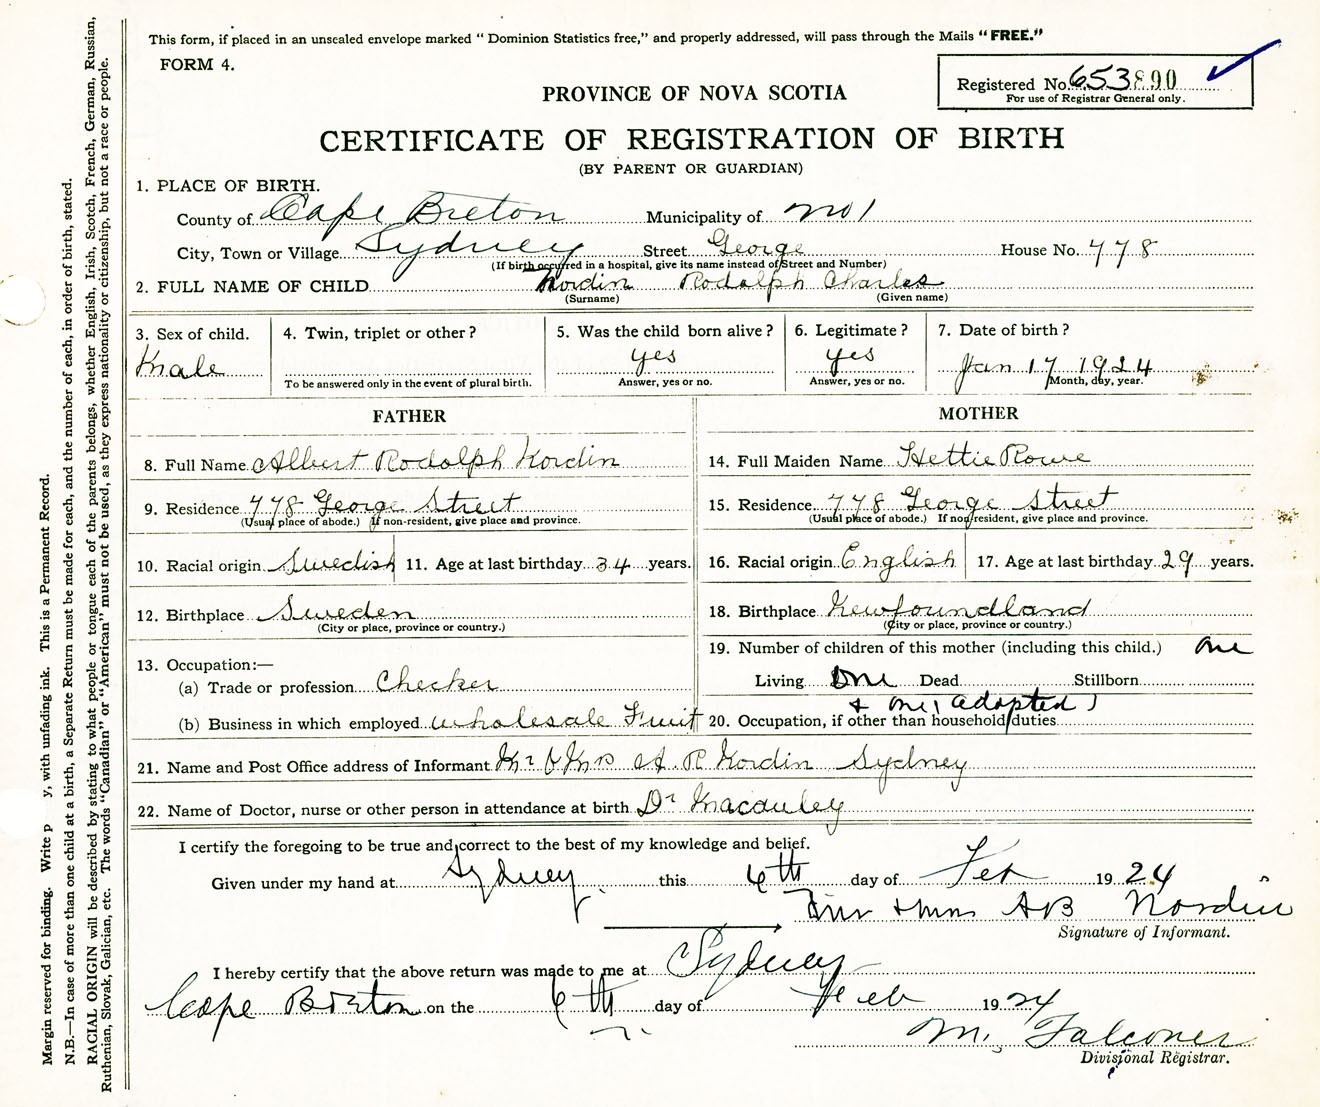 This form, if placed in an unsealed envelope marked " Dominion Statistics free," and properly addressed, will pass through the Mails "FREE."
FORM 4.
Registered No. 653890
For use of Registrar General only.
PROVINCE OF NOVA SCOTIA
CERTIFICATE OF REGISTRATION OF BIRTH
(BY PARENT OR GUARDIAN)
1. PLACE OF BIRTH.
County of Cape Breton Municipality of No 1
City, Town or Village Sydney Street George House No. 778
(If birth occurred in a hospital, give its name instead of Street and Number)
2. FULL NAME OF CHILD Nordin Rodolph Charles
(Surname) (Given name)
3. Sex of child. 4. Twin, triplet or other? 5. Was the child born alive? 6. Legitimate? 7. Date of birth?
Male yes yes Jan 17 1924
To be answered only in the event of plural birth. Answer, yes or no. Answer, yes or no. Month, day, year.
FATHER MOTHER
8. Full Name Albert Rodolph Nordin 14. Full Maiden Name Hettie Rowe
9. Residence 778 George Street 15. Residence 778 George Street
(Usual place of abode.) If non-resident, give place and province. (Usual place of abode.) If non-resident, give place and province.
10. Racial origin Swedish 11. Age at last birthday 34 years. 16. Racial origin English 17. Age at last birthday 29 years.
12. Birthplace Sweden 18. Birthplace Newfoundland
(City or place, province or country.) (City or place, province or country.)
13. Occupation:— 19. Number of children of this mother (including this child.) one
(a) Trade or profession Checker Living One Dead Stillborn
& one, adopted)
(b) Business in which employed wholesale Fruit 20. Occupation, if other than household duties
21. Name and Post Office address of Informant Mr & Mrs A. R Nordin Sydney
22. Name of Doctor, nurse or other person in attendance at birth Dr Macauley
I certify the foregoing to be true and correct to the best of my knowledge and belief.
Given under my hand at Sydney this 6th day of Feb 1924
Mr & Mrs A B Nordin
Signature of Informant.
I hereby certify that the above return was made to me at Sydney
Cape Breton on the 6th day of Feb 1924
M. Falconer
Divisional Registrar.
Margin reserved for binding. Write p y, with unfading ink. This is a Permanent Record.
N.B.—In case of more than one child at a birth, a Separate Return must be made for each, and the number of each, in order of birth, stated.
RACIAL ORIGIN will be described by stating to what people or tongue each of the parents belongs, whether English, Irish, Scotch, French, German, Russian,
Ruthenian, Slovak, Galician, etc. The words "Canadian" or "American" must not be used, as they express nationality or citizenship, but not a race or people.